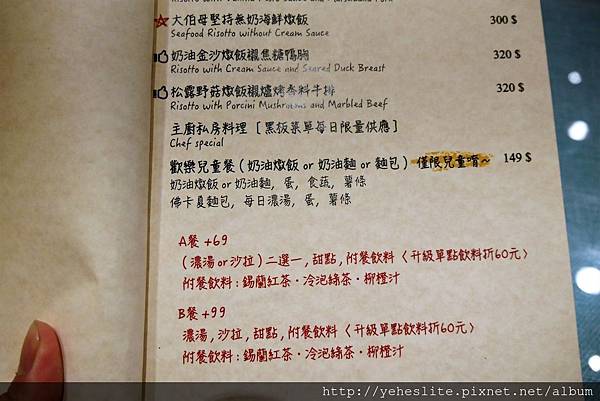 大伯母堅持無奶海鮮燉飯 300 $
Seafood Risotto without Cream Sauce
奶油金沙燉飯襯焦糖鴨胸 320 $
Risotto with Cream Sauce and Seared Duck Breast
松露野菇燉飯襯爐烤香料牛排 320 $
Risotto with Porcini Mushrooms and Marbled Beef
主廚私房料理 [ 黑板菜單每日限量供應 ]
Chef special
歡樂兒童餐 ( 奶油燉飯 or 奶油麵 or 麵包 ) 僅限兒童唷~ 149 $
奶油燉飯 or 奶油麵, 蛋, 食蔬, 薯條
佛卡夏麵包, 每日濃湯, 蛋, 薯條
A餐 +69
( 濃湯 or 沙拉 ) 二選一 , 甜點 , 附餐飲料 〈 升級單點飲料折60元 〉
附餐飲料 : 錫蘭紅茶 · 冷泡綠茶 · 柳橙汁
B餐 +99
濃湯 , 沙拉 , 甜點 , 附餐飲料 〈 升級單點飲料折60元 〉
附餐飲料 : 錫蘭紅茶 · 冷泡綠茶 · 柳橙汁
http://yeheslite.pixnet.net/album